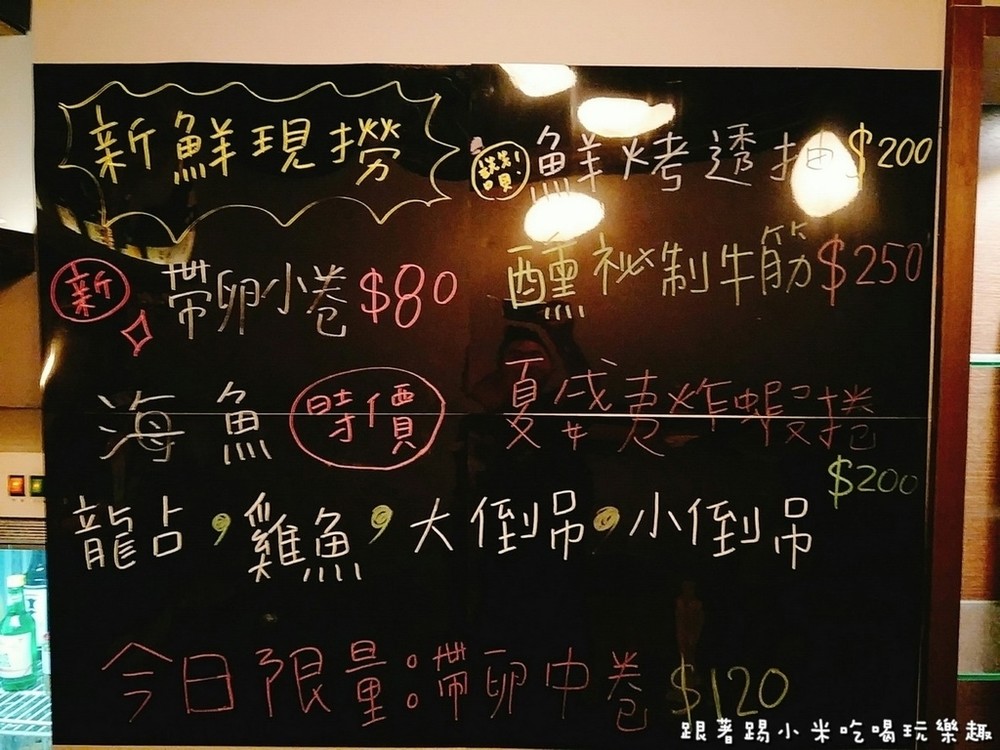 新鮮現撈
讚!嘖 鮮烤透抽 $200
新 帶卵小卷 $80
醺祕制牛筋 $250
海魚 特價
夏威夷炸蝦捲
$200
龍占，雞魚，大倒吊，小倒吊
今日限量:帶卵中卷 $120
跟著踢小米吃喝玩樂趣